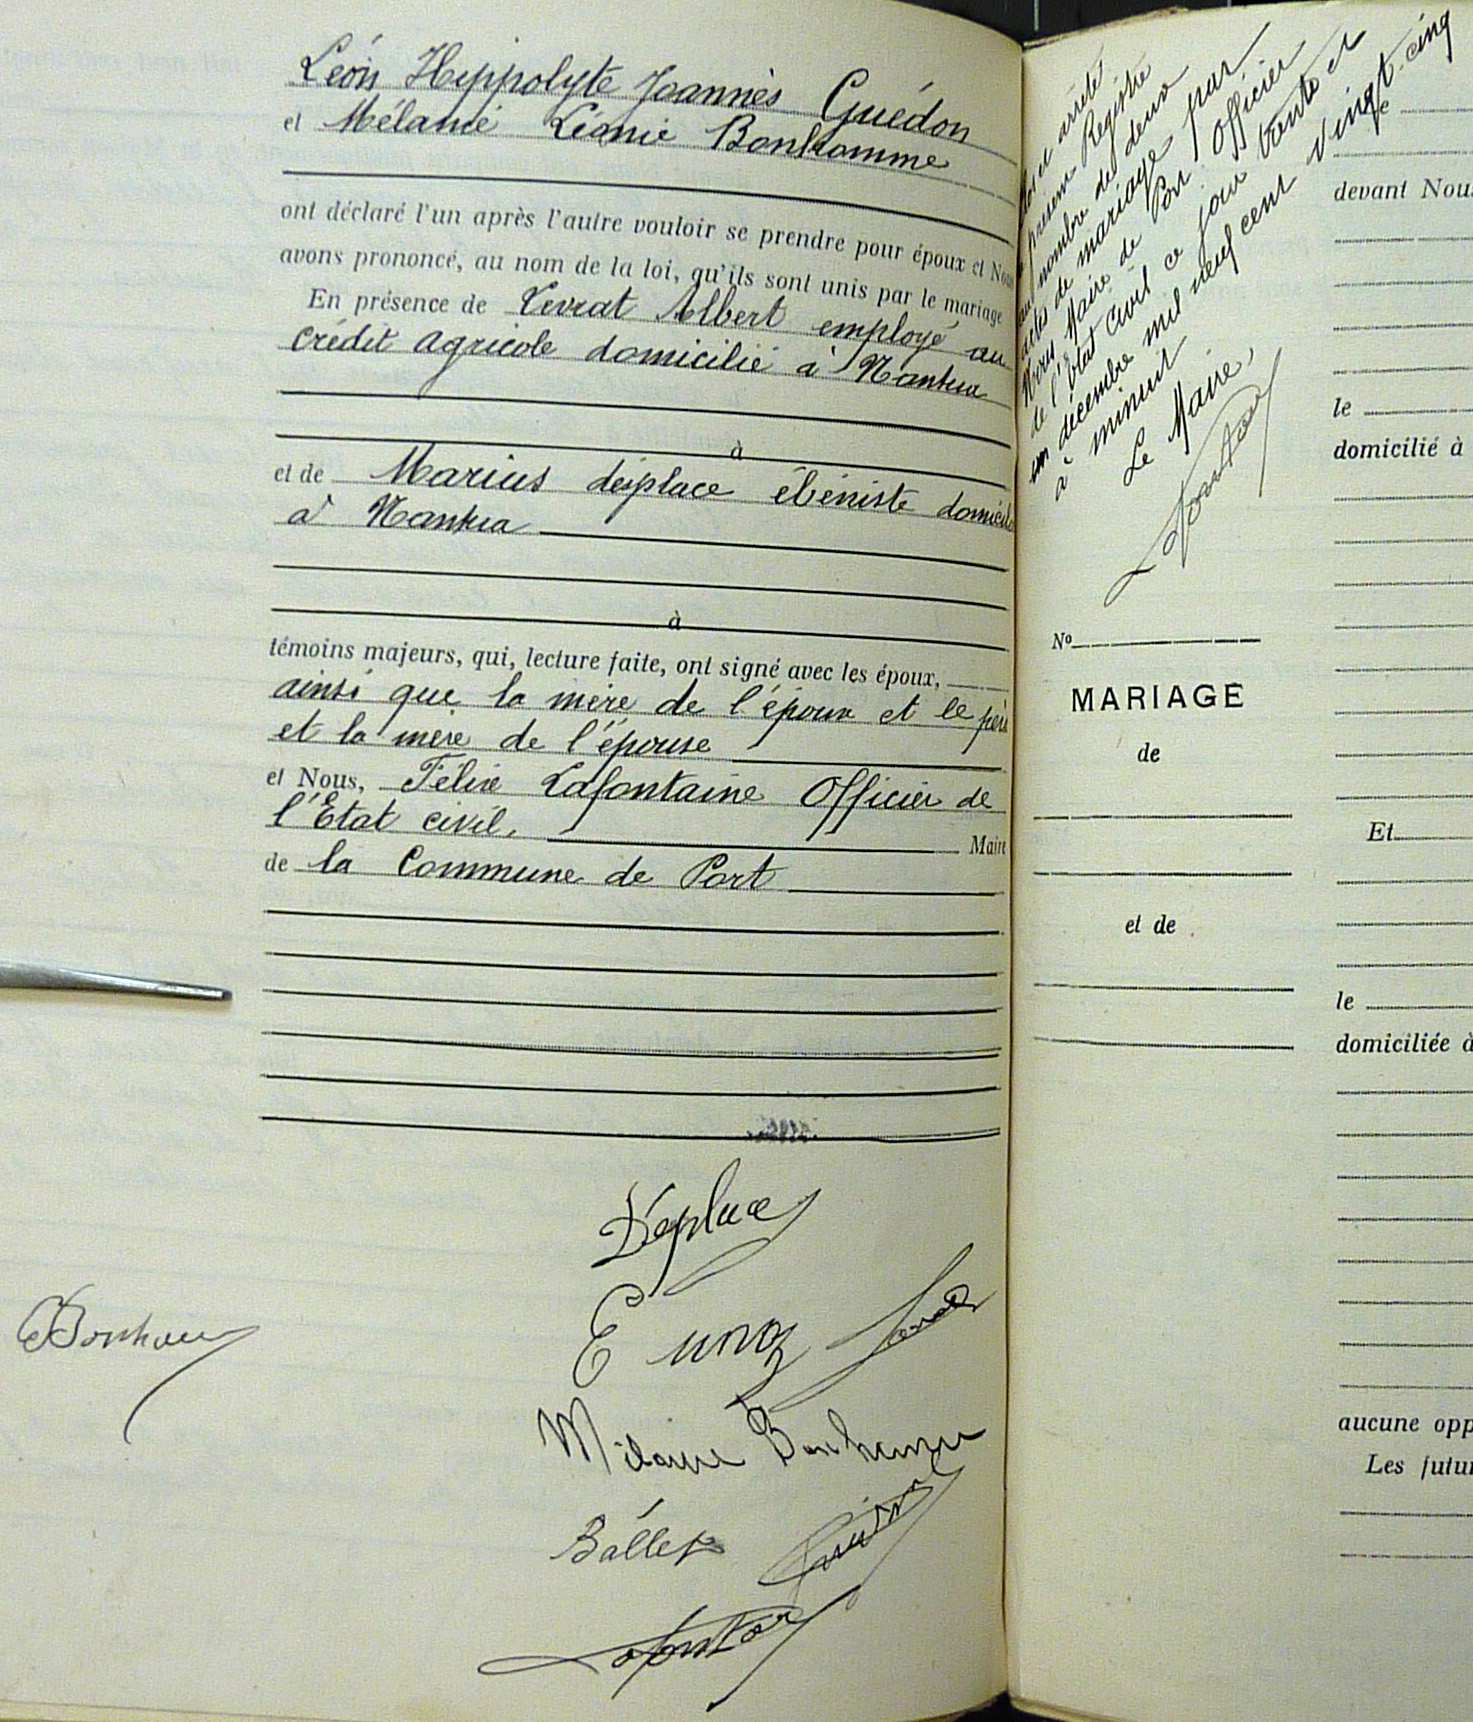 Léon Hippolyte Joannès Guédon
et Mélanie Léonie Bonhomme
ont déclaré l'un après l'autre vouloir se prendre pour époux et Nous
avons prononcé, au nom de la loi, qu'ils sont unis par le mariage
En présence de Levrat Albert employé au
crédit agricole domicilié à Nantua
à
et de Marius déplace ébéniste domicilié
à Nantua
à
témoins majeurs, qui, lecture faite, ont signé avec les époux,
ainsi que la mère de l'époux et le père
et la mère de l'épouse
et Nous, Félix Lafontaine Officier de
l'Etat civil, Maire
de la Commune de Port
Déplace
Mélanie Bonhomme
Ballet
Lafontai
présent Registre
au nombre de deux
actes de mariage par
Nous Maire de Port Officier
de l'Etat civil ce jour trente et
un décembre mil neuf cent vingt-cinq
à minuit
Le Maire,
Nº
MARIAGE
de
et de
devant Nous
le
domicilié à
Et
le
domiciliée à
aucune opp
Les futur